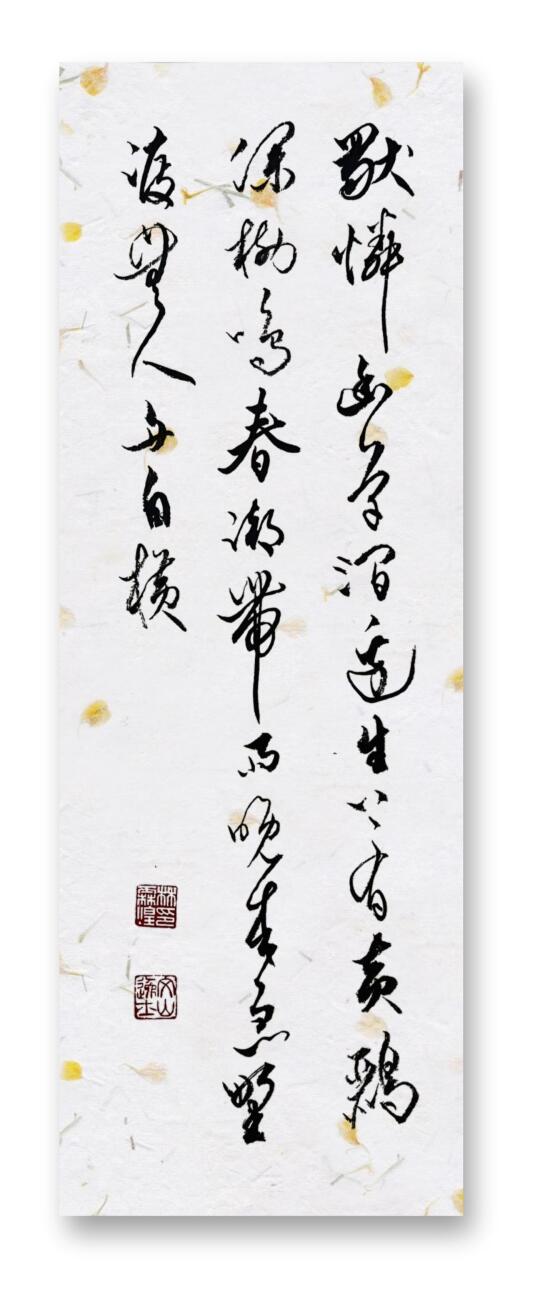 獨憐幽草澗邊生上有黃鸝
深樹鳴春潮帶雨晚來急野
渡無人舟自橫
林印
文山逸士